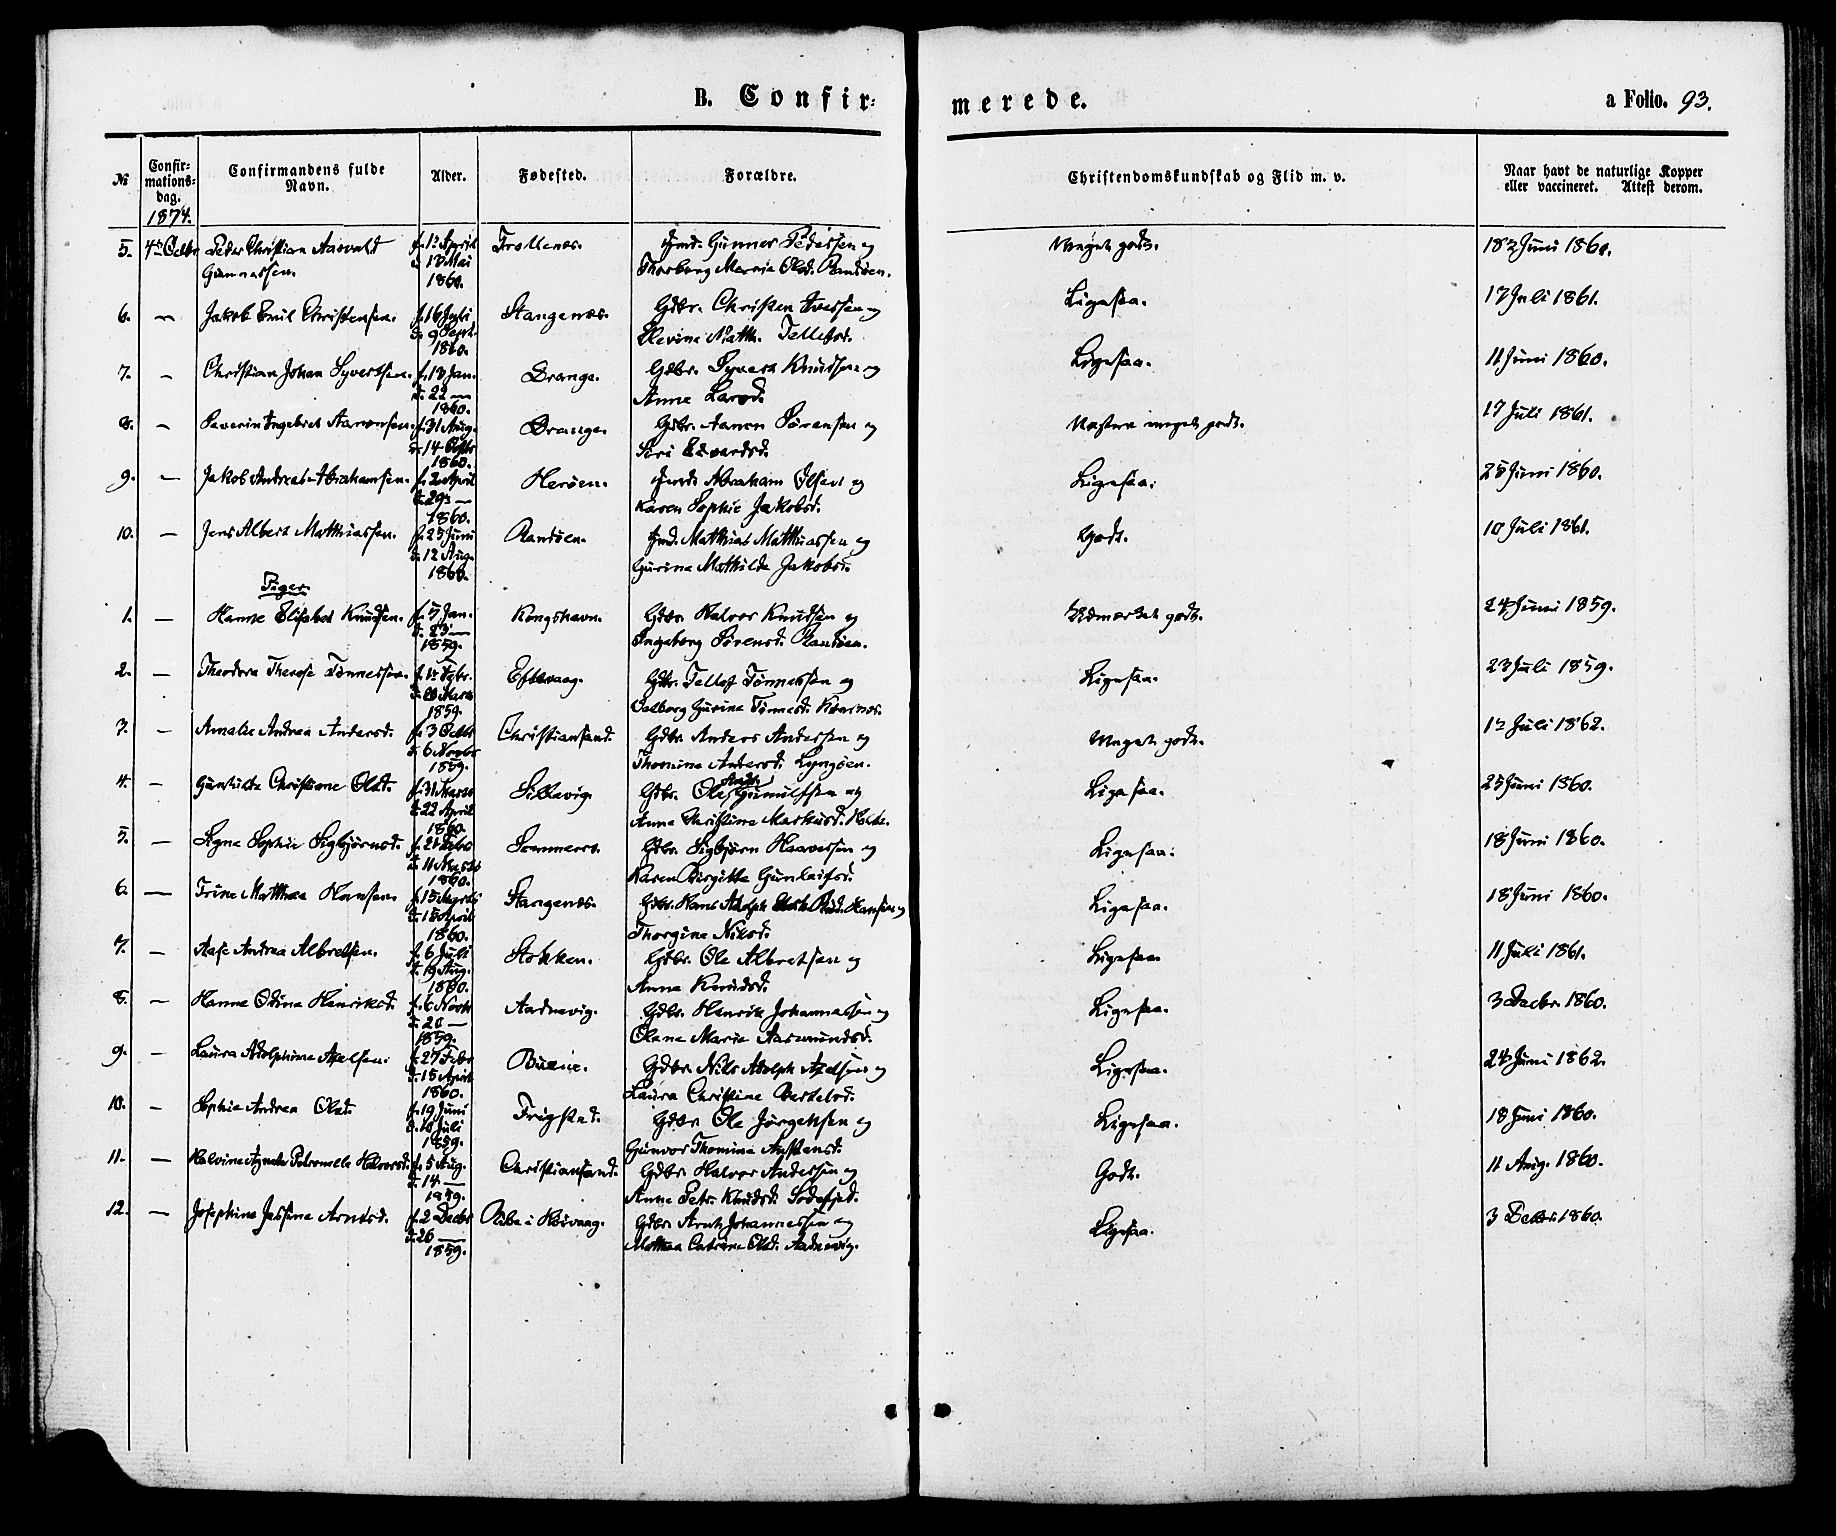 B. Confir-
merede.
a Folio. 93.
№ Confir-mations-dag. 1874. Confirmandens fulde Navn. Alder. Fødested. Forældre. Christendomskundskab og Flid m. v. Naar havt de naturlige Kopper eller vaccineret. Attest derom.
5. 4de Octbr Peder Christian Aasvald f. 1ste April Trollenes. Gunner Pedersen og Meget godt. 18de Juni 1860.
Gunnersen. d. 17 Mai Thorborg Marie Olsd. Randøen.
1860.
6. Jakob Emil Christensen. f. 16 Juli Stangenes. Gdbr. Christen Iversen og Ligesaa. 17 Juli 1861.
d. 9 Sept. Elevine Matth. Tellefsd.
1860.
7. — Christian Johan Syvertsen. f. 17 Jan. Drange. Gdbr. Syvert Knudsen og Ligesaa. 11 Juni 1860.
d. 22 — Anne Larsd.
1860.
8. — Severin Ingebret Aanonsen. f. 31 Aug. Drange. Gdbr. Aanon Sørensen og Næsten meget godt. 17 Juli 1861.
d. 14 Octbr Siri Edvardsd.
1860.
9. — Jakob Andreas Abrahamsen. f. 2 April Herøen. Abraham Olsen og Ligesaa. 25 Juni 1860.
d. 29 — Karen Sophie Jakobsd.
1860.
10. — Jens Albert Matthiassen. f. 25 Juni Randøen. Matthias Matthiassen og Godt. 10 Juli 1861.
d. 12 Aug. Gurine Mathilde Jakobsd.
1860.
Piger
1. — Hanne Elisabet Knudsen. f. 5 Jan. Kongshavn. Gdbr. Halvor Knudsen og Udmærket godt. 24 Juni 1859.
d. 23 — Ingeborg Sørensd. Randøen.
1859.
2. — Theodora Therese Tønnessen. f. 12 Febr. Eftevaag. Gdbr. Tellef Tønnessen og Ligesaa. 23 Juli 1859.
d. 20 Marts Valborg Gurine Tønnesd. Kvarnes.
1859.
3. — Amalie Andrea Andersd. f. 3 Octbr Christianssand. Gdbr. Anders Andersen og Meget godt. 12 Juli 1862.
d. 6 Novbr Thomine Andersd. Lyngøen.
1859.
4. — Gunhilde Christiane Olsd. f. 31 Marts Gdbr. Ole Gunulfsen og Ligesaa. 25 Juni 1860.
d. 22 April Anne Christine Markusd.
1860.
5. — Signe Sophie Sigbjørnsd. f. 21 Febr Gdbr. Sigbjørn Haavorsen og Ligesaa. 18 Juni 1860.
d. 11 Marts Karen Birgitte Gunleifsd.
1860.
6. — Trine Matthea Hansen. f. 15 Marts Stangenes. Gdbr. Hans Adolph Hansen og Ligesaa. 18 Juni 1860.
d. 15 April Thorgine Nilsd.
1860.
7. — Aase Andrea Albretsen. f. 6 Juli Stokken. Gdbr. Ole Albretsen og Ligesaa. 11 Juli 1861.
d. 19 Aug. Anne Knudsd.
1860.
8. — Hanne Odine Henriksd. f. 6 Novbr Aadnevig. Gdbr. Henrik Johannessen og Ligesaa. 3 Decbr. 1860.
d. 20 — Olene Marie Aasmundsd.
1859.
9. — Laura Adolphine Axelsen. f. 27 Febr Gdbr. Nils Adolph Axelsen og Ligesaa. 24 Juni 1862.
d. 15 April Laura Christine Bertelsd.
1860.
10. — Sophie Andrea Olsd. f. 19 Juni Frigsted. Gdbr. Ole Jørgensen og Ligesaa. 18 Juni 1860.
d. 10 Juli Gunvor Thomine Aystensd.
1859.
11. — Halvine Agnete Petronelle Halvorsd. f. 5 Aug. Christianssand. Gdbr. Halvor Andersen og Godt. 11 Aug. 1860.
d. 14 — Anne Petr. Knudsd. Sodefjed.
1859.
12. — Josephine Jessine Arntsd. f. 2 Decbr Ribe i Høivaag. Gdbr. Arnt Johannessen og Ligesaa. 3 Decbr. 1860.
d. 26 — Mathea Catrine Olsd. Aadnevig.
1859.